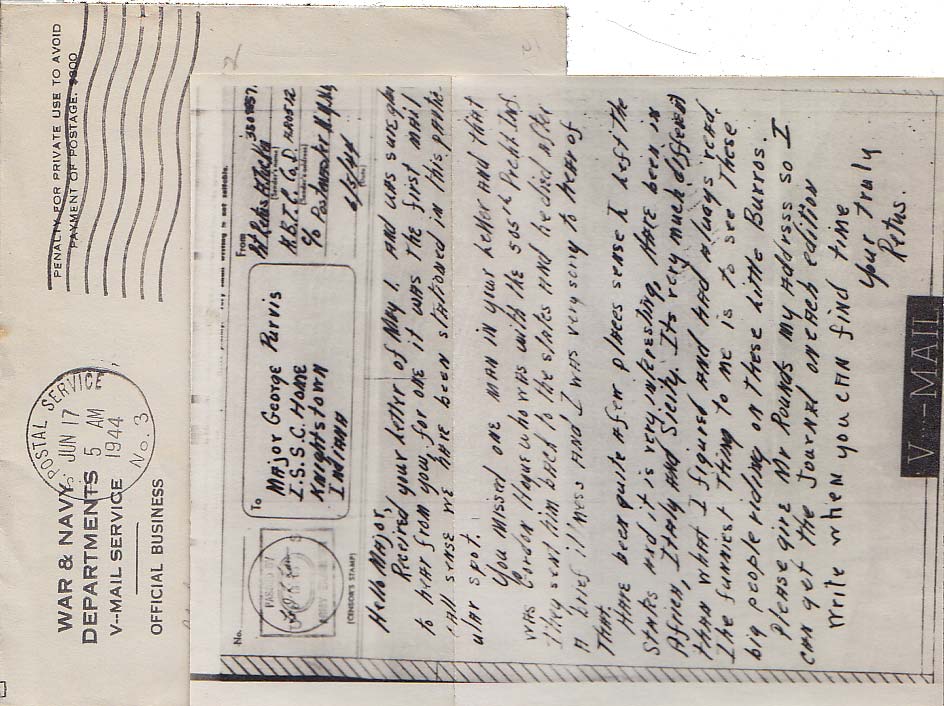 WAR & NAVY
DEPARTMENTS
V-MAIL SERVICE
OFFICIAL BUSINESS
POSTAL SERVICE
JUN 17
5 AM
1944
No. 3
PENALTY FOR PRIVATE USE TO AVOID
PAYMENT OF POSTAGE, $300
No.
(CENSOR'S STAMP)
PASSED BY
To
Major George Purvis
I.S.S.C. Home
Knightstown
Indiana
From
(Sender's name)
(Sender's address)
C/o Postmaster N.Y. N.Y.
6/5/44
(Date)
Hello Major,
Recived your letter of May 1. And was sure glad
to hear from you, for one it was the first mail
I all sense we have been stationed in this partic-
ular spot.
You missed one man in your letter And that
was Gordon Hague who was with the 505th Prcht. Inf.
They sent him back to the states And he died After
A brief illness And I was very sorry to hear of
That.
Have been quite A few places sense I left the
States And it is very interesting, HAVE been in
Africa, Italy And Sicily. Its very much different
than what I figured And had Always read.
The funniest thing to me is to see These
big people riding on these little Burros.
Please give Mr Pounds my Address so I
can get the Journal on each edition
Write when you can find time
Your truly
Retus.
V--MAIL